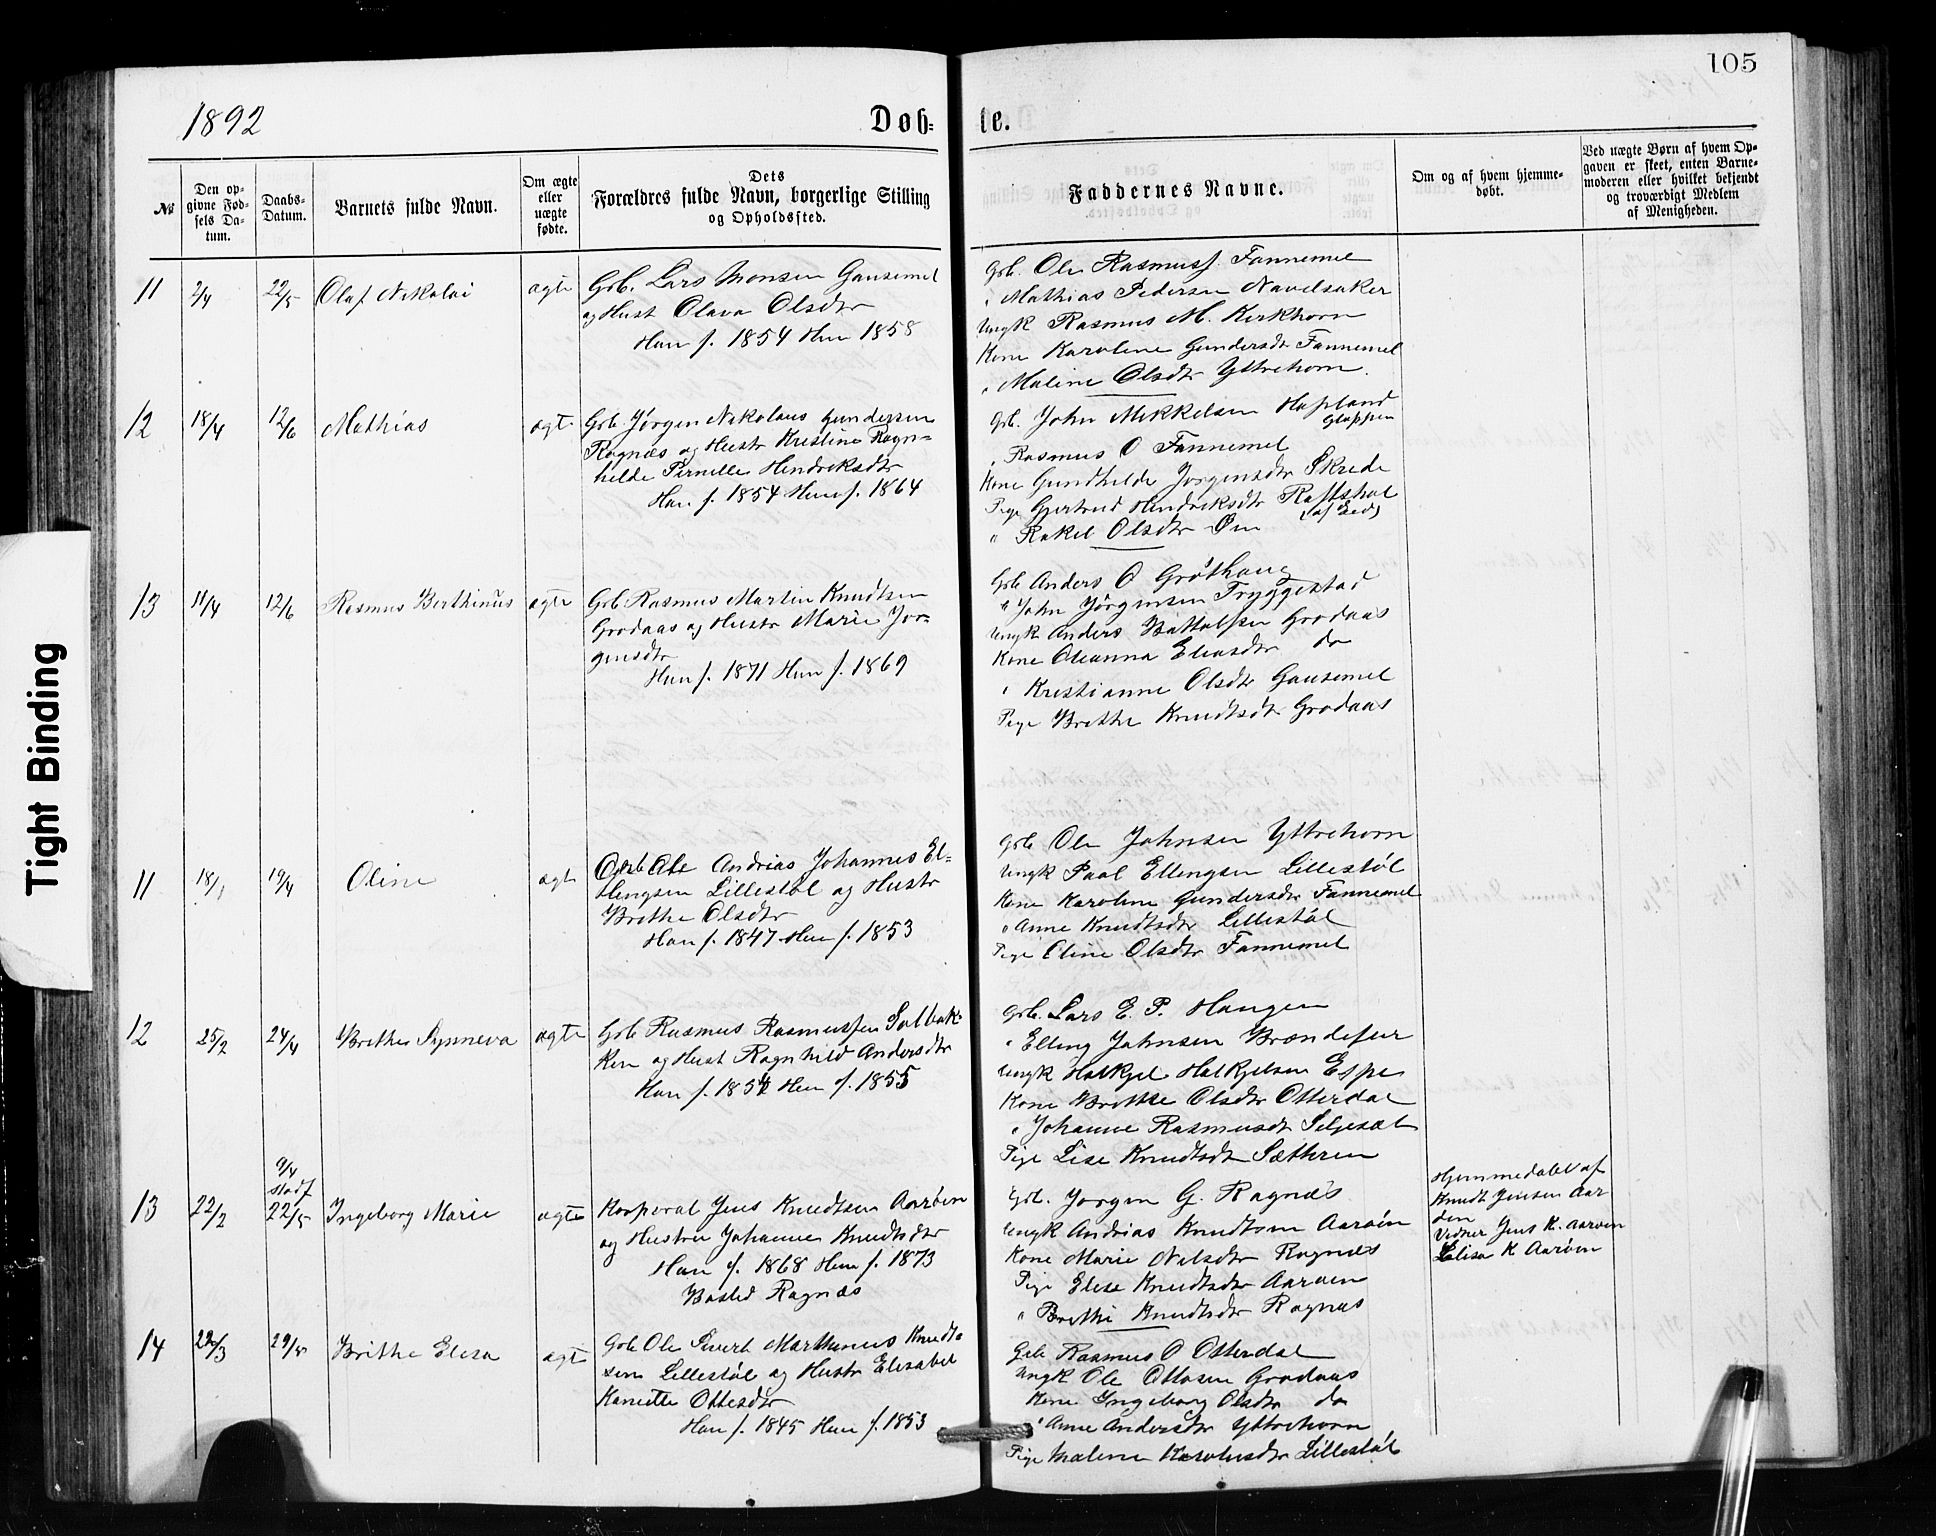 105
1892
Døb-
te.
№
Den op-
givne Fød-
sels Da-
tum.
Daabs-
Datum.
Barnets fulde Navn.
Om ægte
eller
uægte
fødte.
Dets
Forældres fulde Navn, borgerlige Stilling
og Opholdssted.
Faddernes Navne.
Om og af hvem hjemme-
døbt.
Ved uægte Børn af hvem Op-
gaven er skeet, enten Barne-
moderen eller hvilket bekjendt
og troværdigt Medlem
af Menigheden.
11 2/4 22/5 Olaf Nikolai ægte
Grb. Lars Monsen Gausemel
og Hust Olava Olsdtr
Han f. 1854 Hun 1858
Grb. Ole Rasmusf. Fannemel
" Mathias Pedersen Navelsaker
Ungk Rasmus M. Kirkhorn
Kone Karoline Gundersdtr Fannemel
" Maline Olsdtr Yttrehorn.
12 18/4 12/6 Mathias ægte
Grb. Jørgen Nikolaus Gundersen
Ragnæs og Hustr Kristine Ragn-
hilde Pernille Hendriksdtr
Han f. 1854 Hun f. 1864
Grb. John Mikkelsen Hopland
Gloppen
" Rasmus O Fannemel
Kone Gundhilde Jørgensdtr Skrede
Pige Gjertrud Hendriksdtr Raftshol
(af Eid)
" Rakel Olsdtr Øen
13 11/4 12/6 Rasmus Berthinus ægte
Grb Rasmus Martin Knudtsen
Grodaas og Hustr Marie Jør-
gensdtr
Han f. 1871 Hun f. 1869
Grb Anders O Grøthaug
" John Jørgensen Tryggestad
Ungk Anders Battolfsen Grodaas
Kone Oleanna Eliasdtr do
" Kristianne Olsdtr Gausemel
Pige Brithe Knudtsdtr Grodaas
11 18/1 19/4 Oline ægte
Grb Andrias Johannes El-
lingsen Lillestøl og Hustr
Brithe Olsdtr
Han f. 1847 Hun f. 1853
Grb Ole Johnsen Yttrehorn
Ungk Paal Ellingsen Lillestøl
Kone Karoline Gundersdtr Fannemel
" Anne Knudtsdtr Lillestøl
Pige Eline Olsdtr Fannemel
12 25/2 24/4 Brithe Synneva ægte
Grb Rasmus Rasmussen Solbak-
ken og Hust Ragnhild Andersdtr
Han f. 1854 Hun f. 1855
Grb. Lars E. P. Haugen
" Elling Johnsen Brændefur
Ungk Halkjel Halkjelsen Espe
Kone Brithe Olsdtr Otterdal
" Johanne Rasmusdt Seljeset
Pige Lise Knudtsdtr Sæthren
9/4
Stadf
13 22/2 22/5 Ingeborg Marie ægte
Korporal Jens Knudtsen Aarøen
og Hustru Johanne Knudtsdtr
Han f. 1868 Hun f. 1873
Bosted Ragnæs
Grb. Jørgen G. Ragnæs
Ungk Andrias Knudtsen Aarøen
Kone Marie Nilsdtr Ragnæs
Pige Elise Knudtsdtr Aarøen
" Brithe Knudtsdtr Ragnæs
Hjemmedøbt af
Knudt Jensen Aar
øen
Vidner Jens K. Aarøen
Elisa K Aarøen
14 22/3 29/5 Brithe Elisa ægte
Grb Ole Sivert Marthinus Knudt-
sen Lillestøl og Hustr Elisabet
Kanutte Ottesdtr
Han f. 1845 Hun f. 1853
Grb Rasmus O Otterdal
Ungk Ole Ottosen Grodaas
Kone Ingeborg Olsdtr do
" Anne Andersdtr Yttrehorn
Pige Malene Karolusdtr Lillestøl
Tight Binding